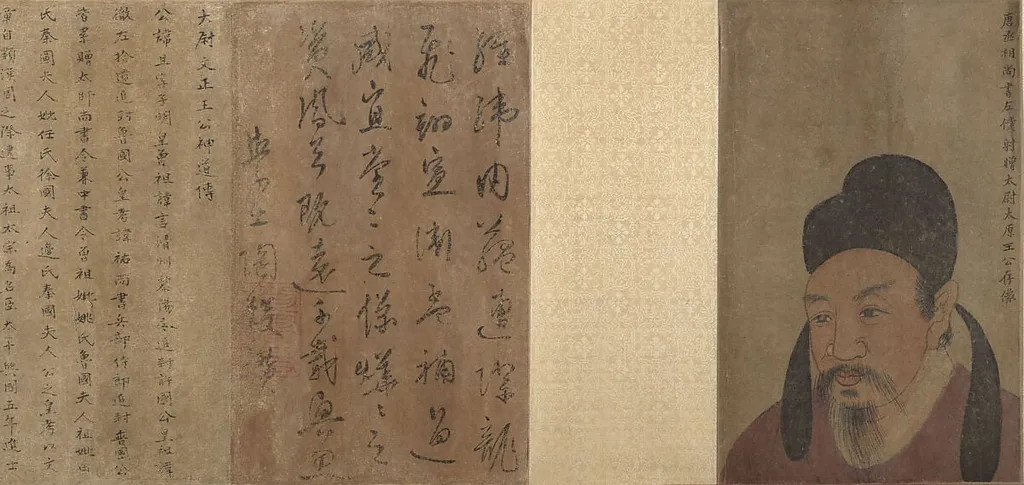 唐丞相尚書左僕射贈太尉太原王公存像
經緯內蘊遭際龍
飛翊宣補過
咸宜堂〻之儀赫〻之
風兮既遠千載典
大尉文正王公神道傳
公諱旦字子明皇曾祖諱言滑州黎陽令追封許國公皇祖諱
徹左拾遺追封魯國公皇考諱祐尚書兵部侍郎追封晉國公
皆累贈太師尚書令兼中書令曾祖妣姚氏魯國夫人祖妣田
氏秦國夫人妣任氏徐國夫人邊氏秦國夫人公之皇考以文
章自顯漢周之際逮事太祖太宗為名臣太平興國五年進士